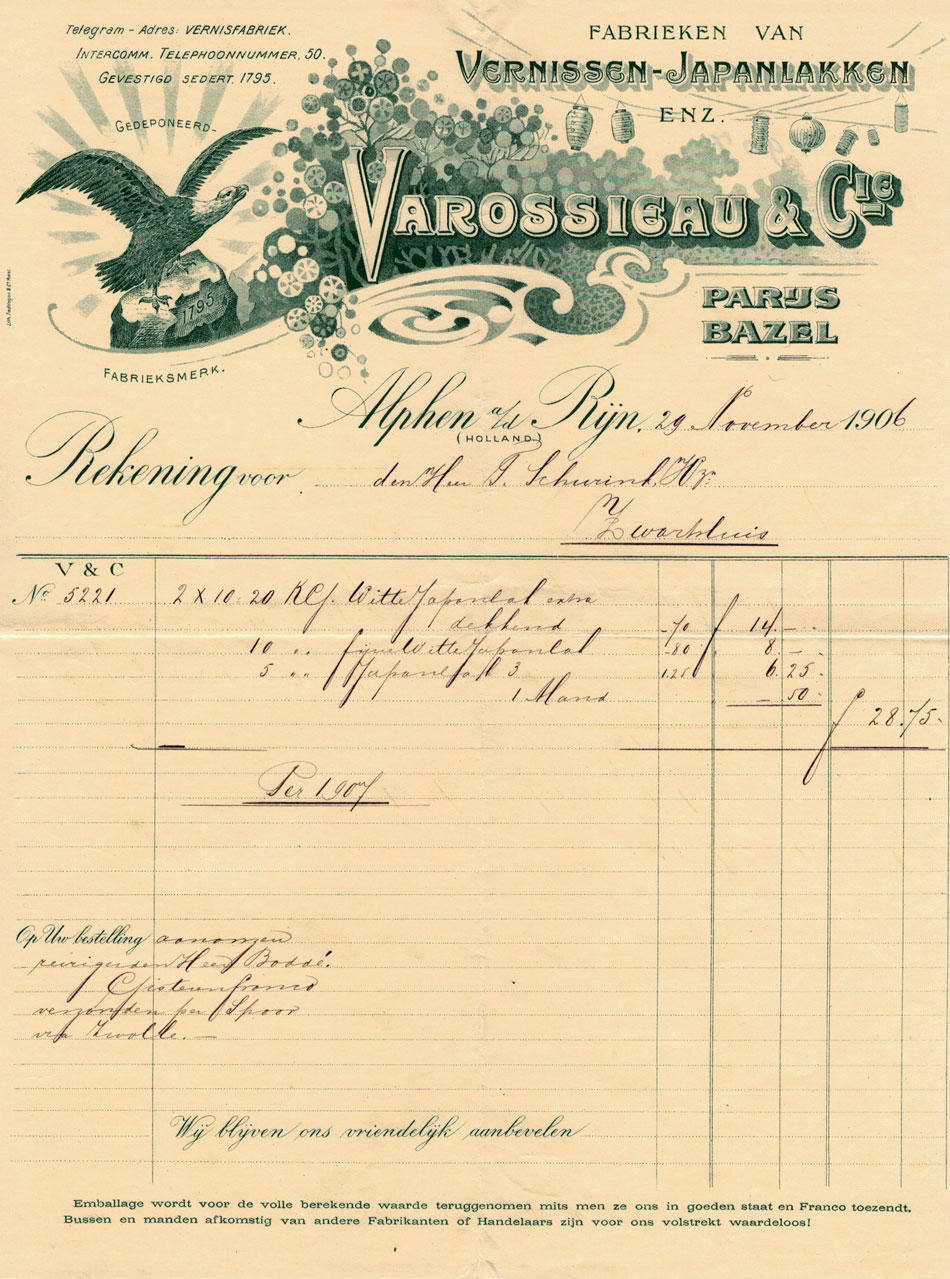 Telegram - Adres: VERNISFABRIEK.
INTERCOMM. TELEPHOONNUMMER, 50.
GEVESTIGD SEDERT. 1795.
GEDEPONEERD.
1795
FABRIEKSMERK.
FABRIEKEN VAN
VERNISSEN-JAPANLAKKEN
ENZ.
VAROSSIEAU & CIE
PARIJS
BAZEL
Alphen a/d Rijn, 29 November 1906
(HOLLAND)
Rekening voor den Heer F. Schurink Hzn
Zwartsluis
V & C
No 5221 2 X 10 20 KG. Witte Japanlak extra
dekkend -70 f 14.-
10 " fijne Witte Japanlak -80 " 8.-
5 " Japanlak 3 1.25 6.25
1 Mand " -.50
f 28.75
Per 1907
Op Uw bestelling aan onzen
reiziger den Heer Boddé.
Gisteren franco
verzonden per Spoor
via Zwolle.
Wij blijven ons vriendelijk aanbevelen
Emballage wordt voor de volle berekende waarde teruggenomen mits men ze ons in goeden staat en Franco toezendt.
Bussen en manden afkomstig van andere Fabrikanten of Handelaars zijn voor ons volstrekt waardeloos!